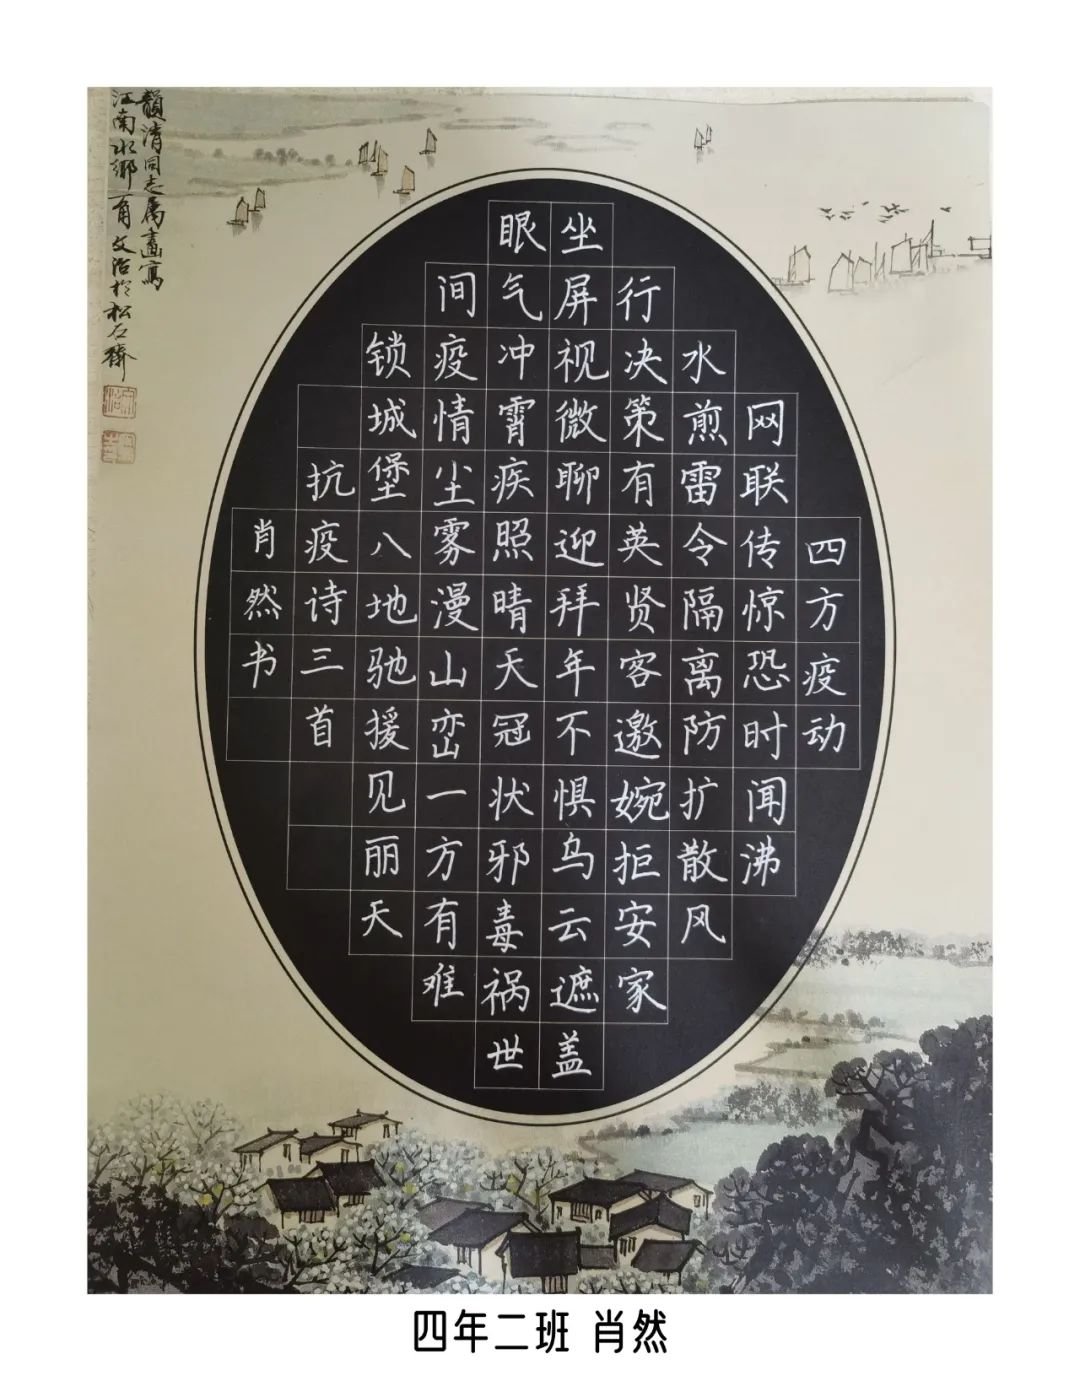 四方疫动
网联传惊恐时闻沸
水煎雷令隔离防扩散风
行决策有英贤客邀婉拒安家
坐屏视微聊迎拜年不惧乌云遮盖
眼气冲霄疾照晴天冠状邪毒祸世
间疫情尘雾漫山峦一方有难
锁城堡八地驰援见丽天
抗疫诗三首
肖然书
韻清同志属畫寫
江南水鄉一角文治於松石齋
四年二班 肖然